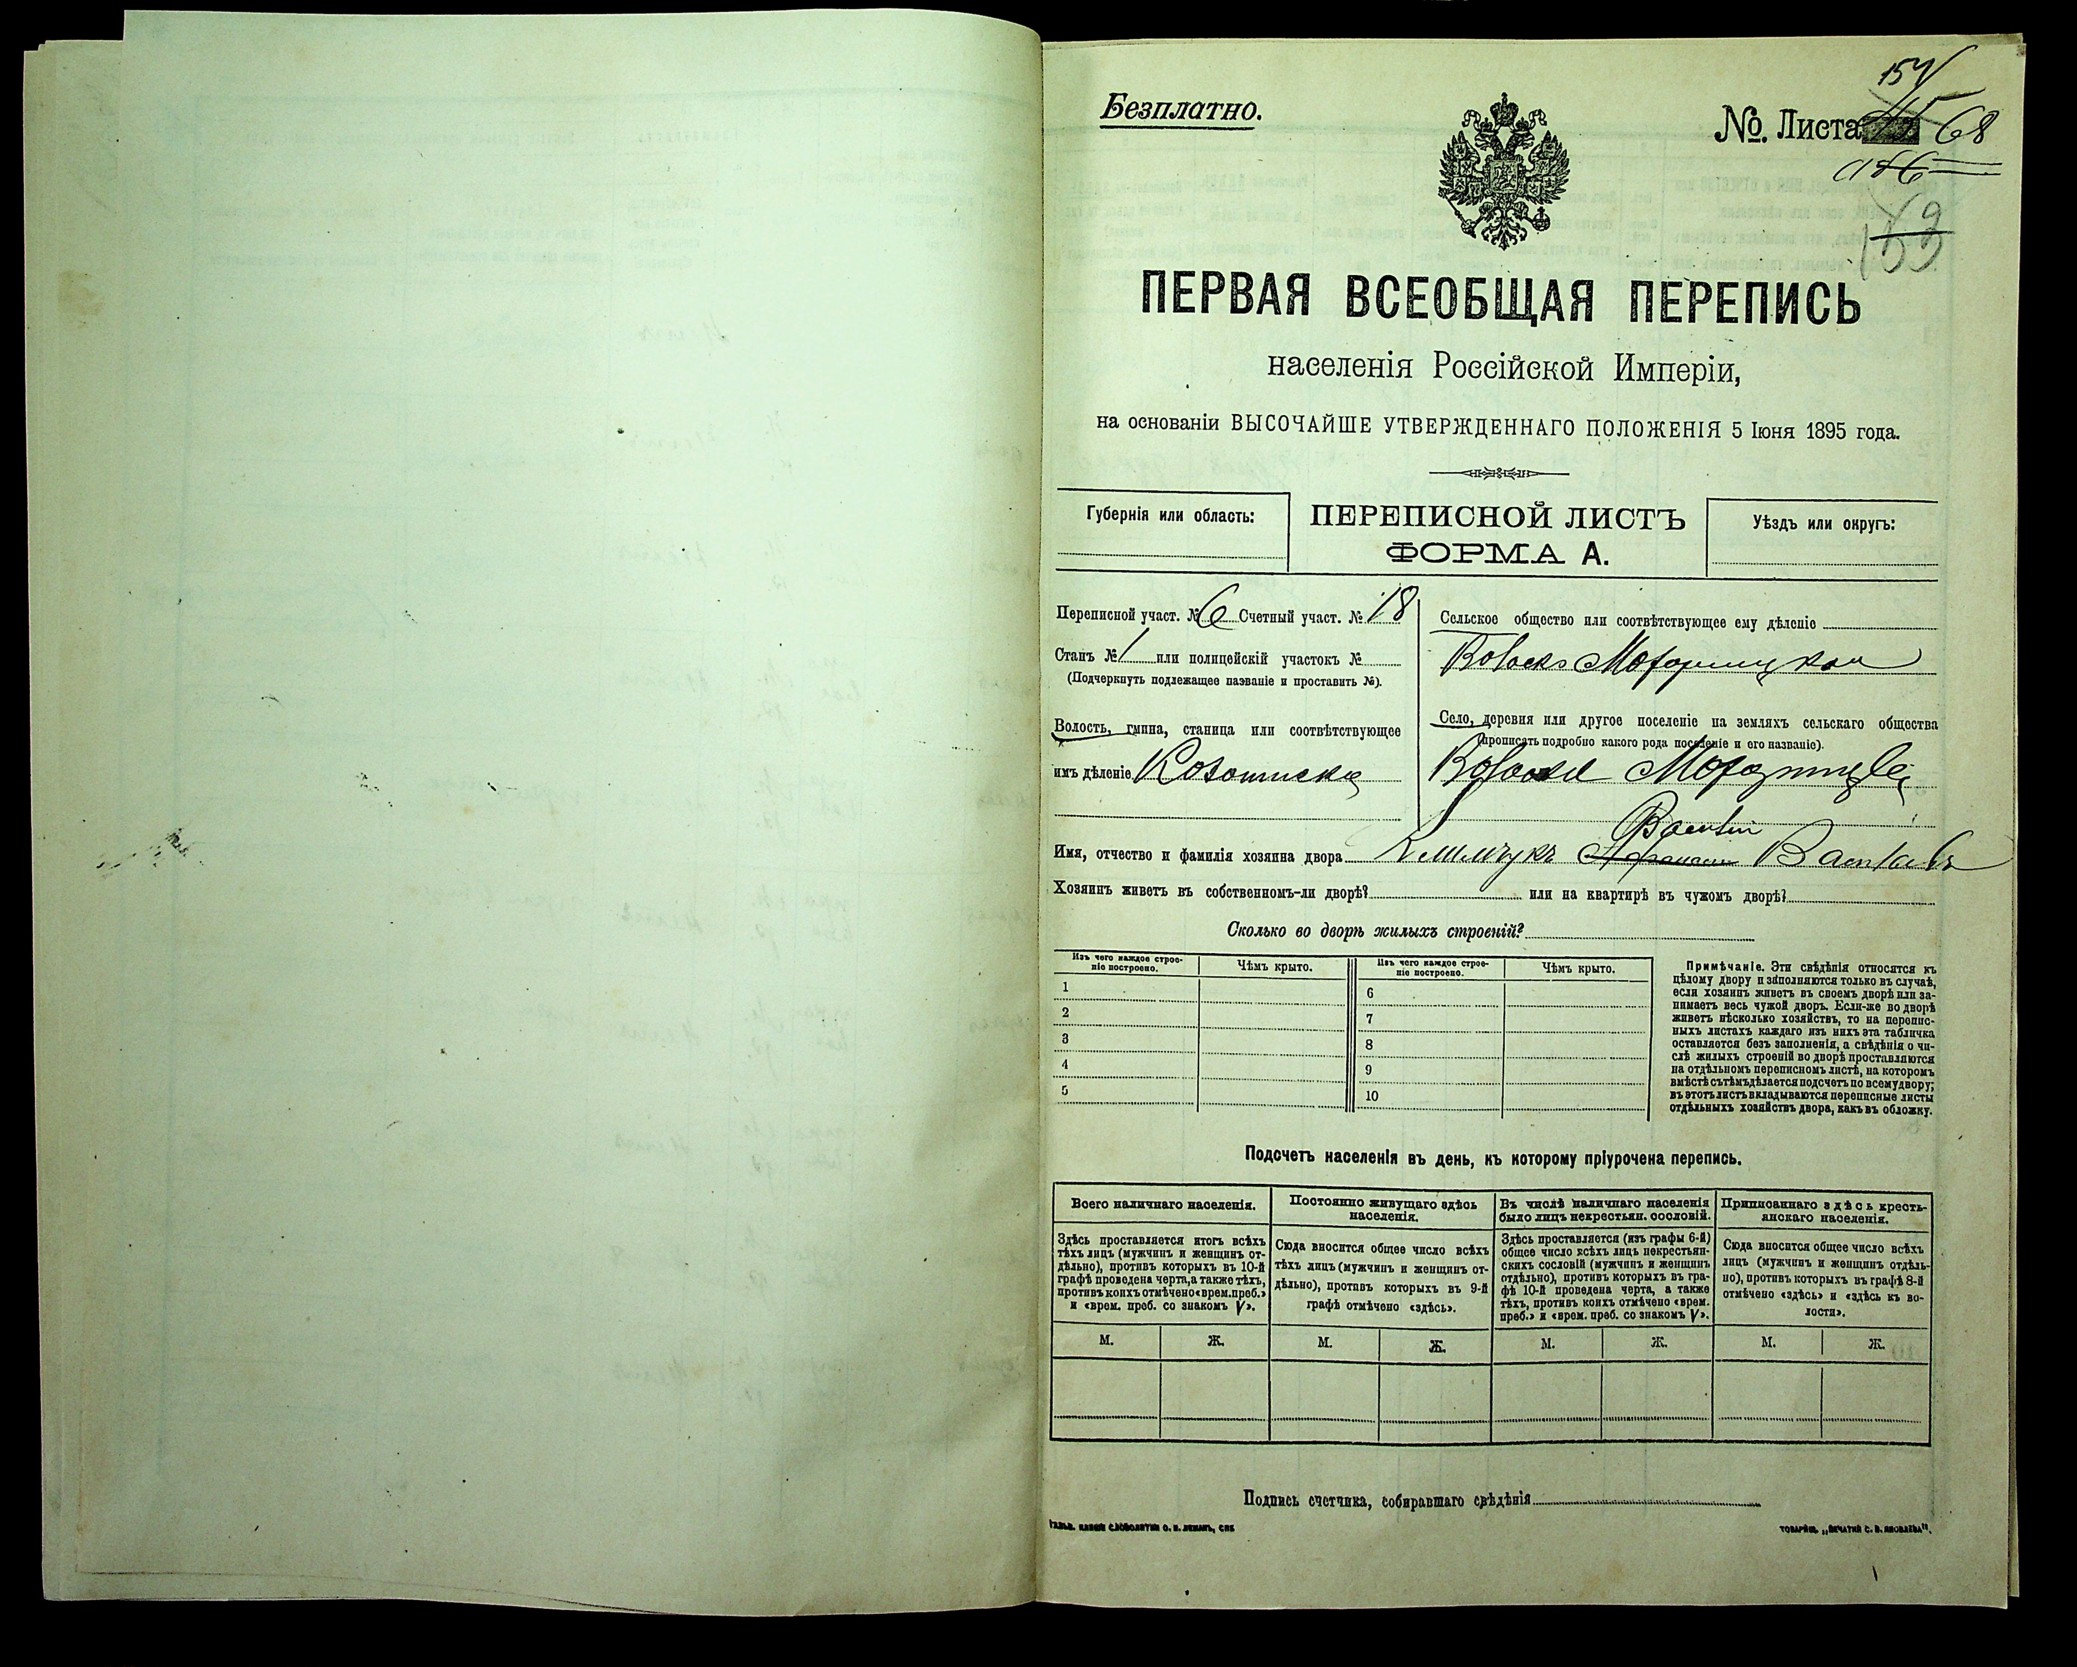 Безплатно.
№. Листа 68
157
ПЕРВАЯ ВСЕОБЩАЯ ПЕРЕПИСЬ
населенія Россійской Имперіи,
на основаніи ВЫСОЧАЙШЕ УТВЕРЖДЕННАГО ПОЛОЖЕНІЯ 5 Іюня 1895 года.
Губернія или область:
ПЕРЕПИСНОЙ ЛИСТЪ
ФОРМА А.
Уѣздъ или округъ:
Переписной участ. № 6 Счетный участ. № 18
Станъ № 1 или полицейскій участокъ №
(Подчеркнуть подлежащее названіе и проставить №).
Волость, гмина, станица или соотвѣтствующее
имъ дѣленіе
Сельское общество или соотвѣтствующее ему дѣленіе
Село, деревня или другое поселеніе на земляхъ сельскаго общества
(прописать подробно какого рода поселеніе и его названіе).
Имя, отчество и фамилія хозяина двора
Хозяинъ живетъ въ собственномъ-ли дворѣ? или на квартирѣ въ чужомъ дворѣ?
Сколько во дворѣ жилыхъ строеній?
Изъ чего каждое строе-
ніе построено.
Чѣмъ крыто.
1
2
3
4
5
Изъ чего каждое строе-
ніе построено.
Чѣмъ крыто.
6
7
8
9
10
Примѣчаніе. Эти свѣдѣнія относятся къ
цѣлому двору и заполняются только въ случаѣ,
если хозяинъ живетъ въ своемъ дворѣ или за-
нимаетъ весь чужой дворъ. Если-же во дворѣ
живетъ нѣсколько хозяйствъ, то на перепис-
ныхъ листахъ каждаго изъ нихъ эта табличка
оставляется безъ заполненія, а свѣдѣнія о чи-
слѣ жилыхъ строеній во дворѣ проставляются
на отдѣльномъ переписномъ листѣ, на которомъ
вмѣстѣ съ тѣмъ дѣлается подсчетъ по всему двору;
въ этотъ листъ вкладываются переписные листы
отдѣльныхъ хозяйствъ двора, какъ въ обложку.
Подсчетъ населенія въ день, къ которому пріурочена перепись.
Всего наличнаго населенія.
Здѣсь проставляется итогъ всѣхъ
тѣхъ лицъ (мужчинъ и женщинъ от-
дѣльно), противъ которыхъ въ 10-й
графѣ проведена черта, а также тѣхъ,
противъ коихъ отмѣчено «врем. преб.»
и «врем. преб. со знакомъ V».
М. Ж.
Постоянно живущаго здѣсь
населенія.
Сюда вносится общее число всѣхъ
тѣхъ лицъ (мужчинъ и женщинъ от-
дѣльно), противъ которыхъ въ 9-й
графѣ отмѣчено «здѣсь».
М. Ж.
Въ числѣ наличнаго населенія
было лицъ некрестьян. сословій.
Здѣсь проставляется (изъ графы 6-й)
общее число всѣхъ лицъ некрестьян-
скихъ сословій (мужчинъ и женщинъ
отдѣльно), противъ которыхъ въ гра-
фѣ 10-й проведена черта, а также
тѣхъ, противъ коихъ отмѣчено «врем.
преб.» и «врем. преб. со знакомъ V».
М. Ж.
Приписаннаго здѣсь кресть-
янскаго населенія.
Сюда вносится общее число всѣхъ
лицъ (мужчинъ и женщинъ отдѣль-
но), противъ которыхъ въ графѣ 8-й
отмѣчено «здѣсь» и «здѣсь къ во-
лости».
М. Ж.
Подпись счетчика, собиравшаго свѣдѣнія